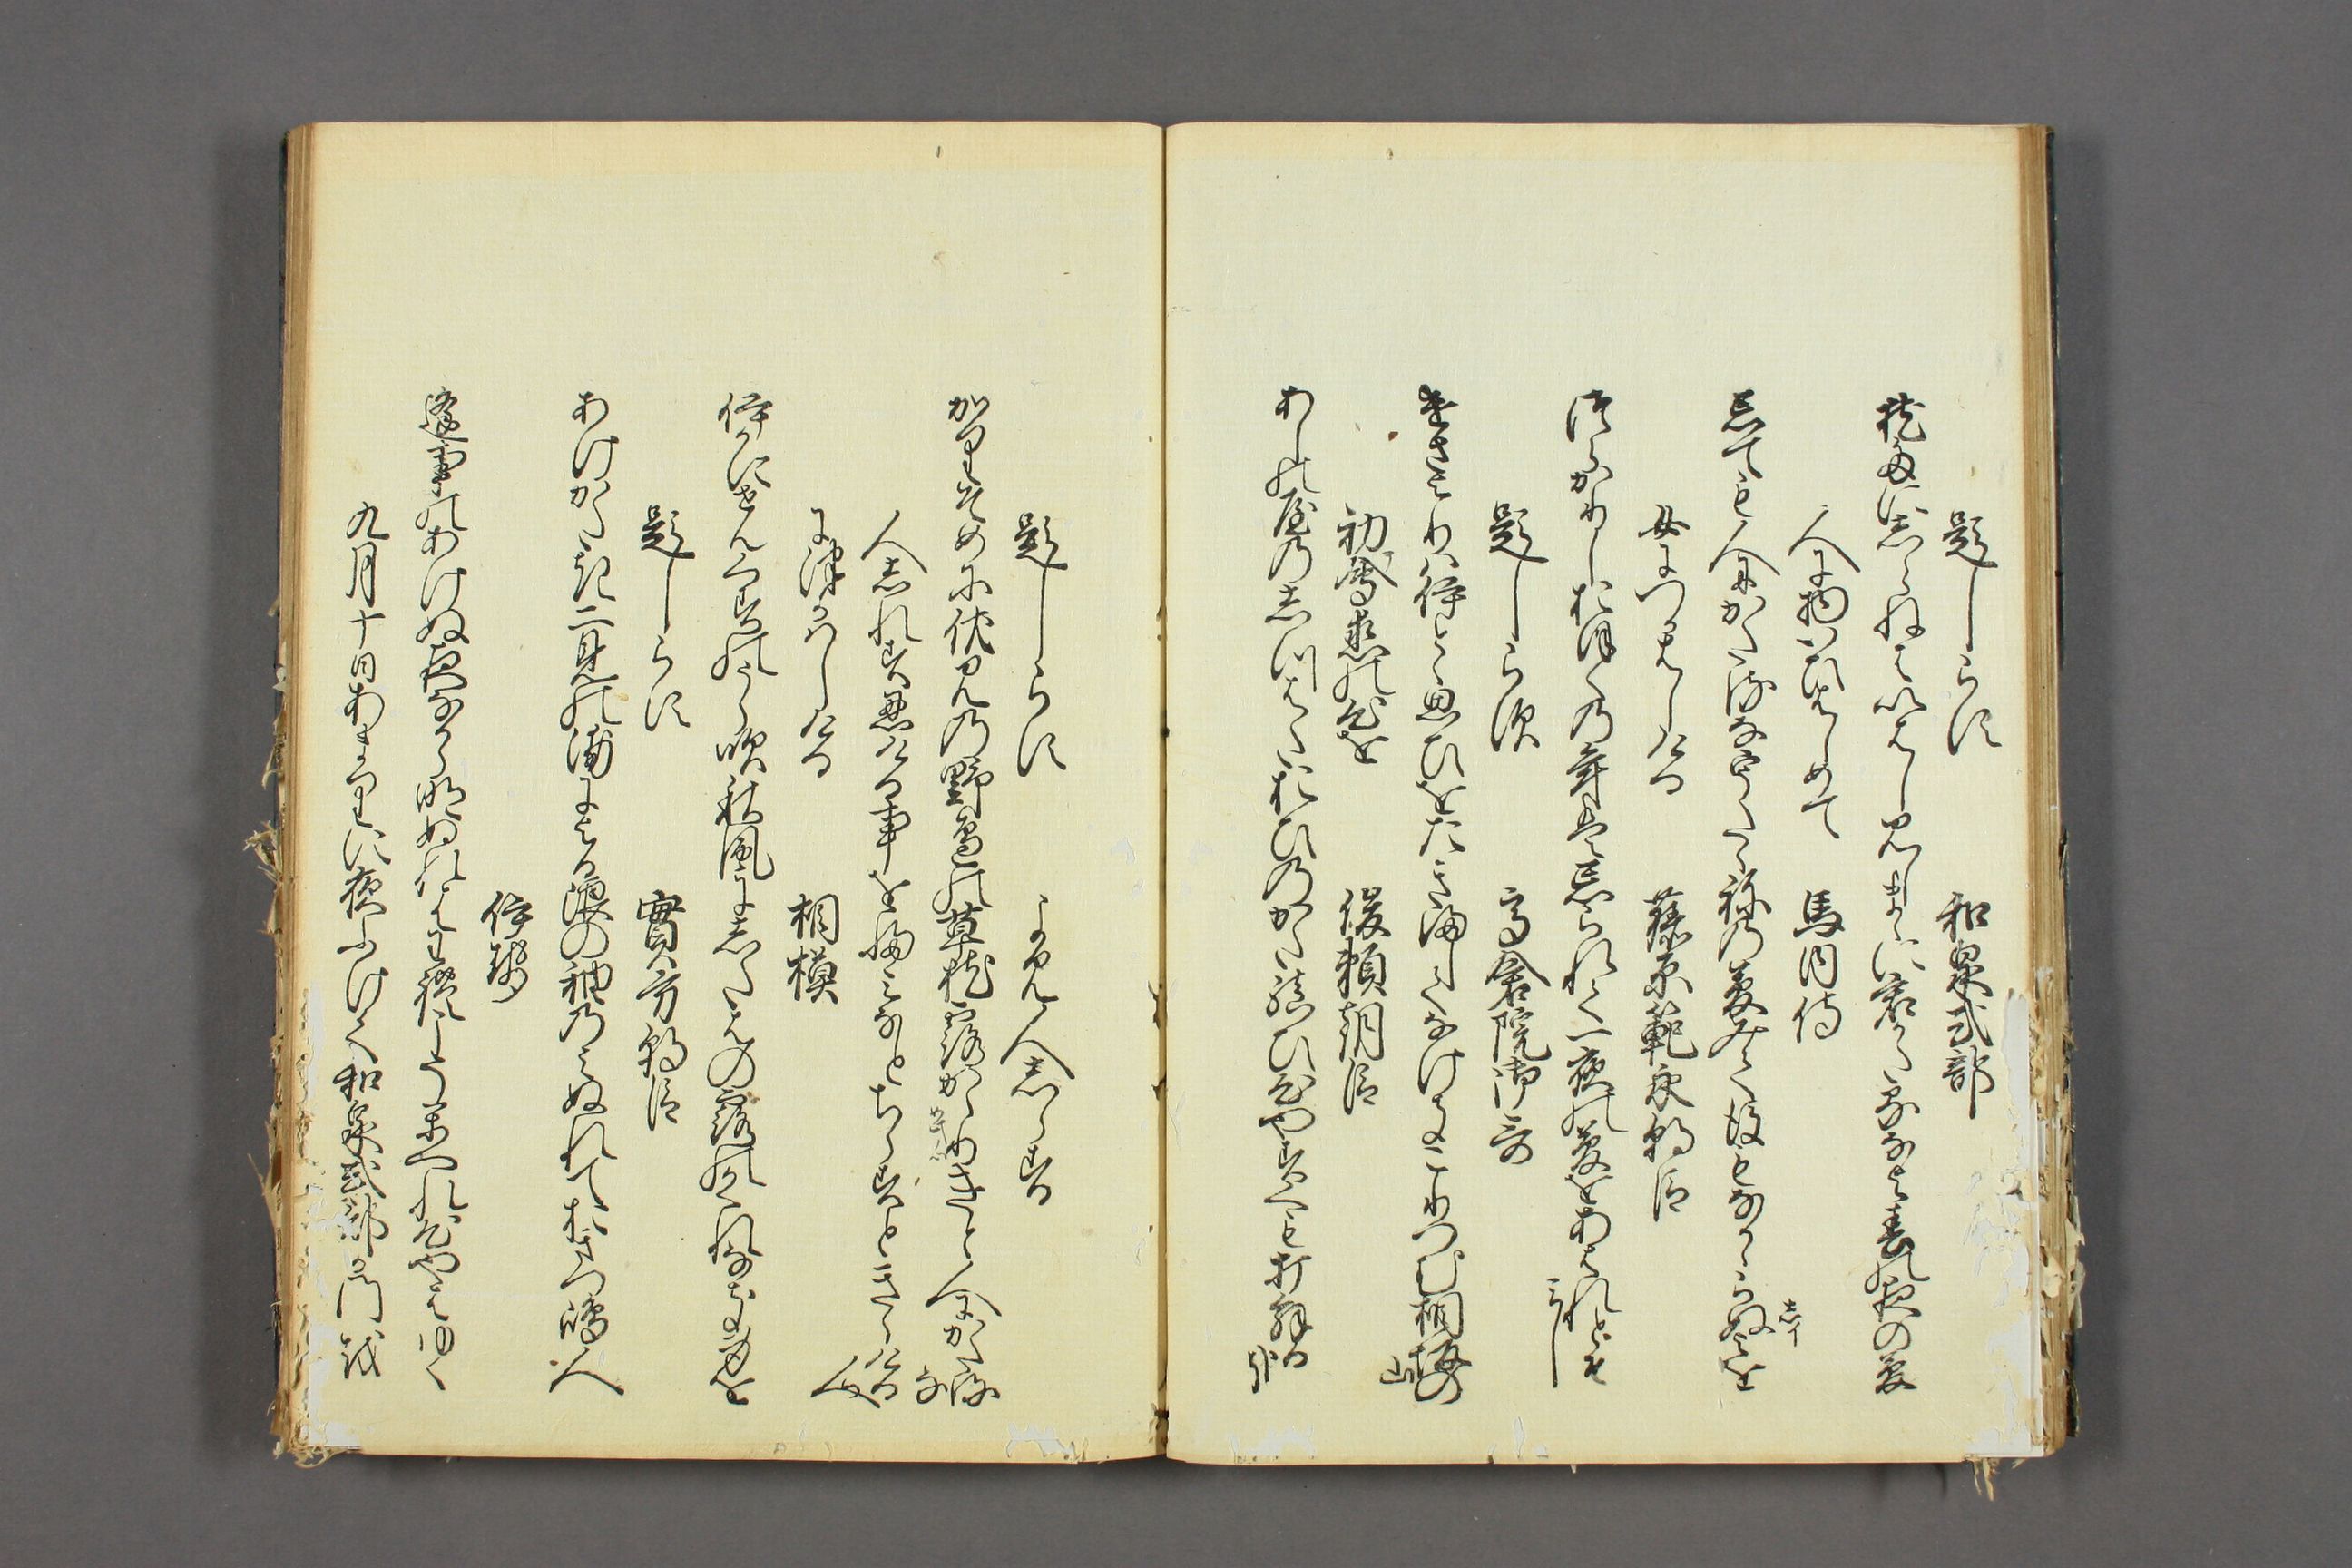 題しらす　和泉式部
枕たにしらねはいはし見しまゝに君かたるなよ春の夜の夢
人に物いひはしめて　馬内侍
忘ても人にかたるなうたゝねの夢みて後もなかゝらぬ世を
しイ
女につかはしける　藤原範永朝臣
つらかりしおほくの年は忘られて一夜の夢をあはれとそ
みし
題しらす　高倉院御哥
けさよりはいとゝ思ひをたきましてなけきこりつむ相坂の
山
初會恋の心を　俊頼朝臣
あしの屋のしつはた帯のかた結ひ心やすくも打解る
哉
題しらす　よみ人しらす
かりそめに伏見の野邊の草枕露かゝりきと人にかたる
な
人しれす忍ひける事を文なとちらすときゝける人
につかはしける　相模
いかにせん葛のうら吹秋風に下葉の露のかくれなき身を
題しらす　實方朝臣
あけかたき二見の浦による浪の袖のみぬれておきつ嶋人
伊勢
逢事のあけぬ夜なから明ぬれは我こそかへれ心やはゆく
九月十日あまりに夜ふけて和泉式部か門を